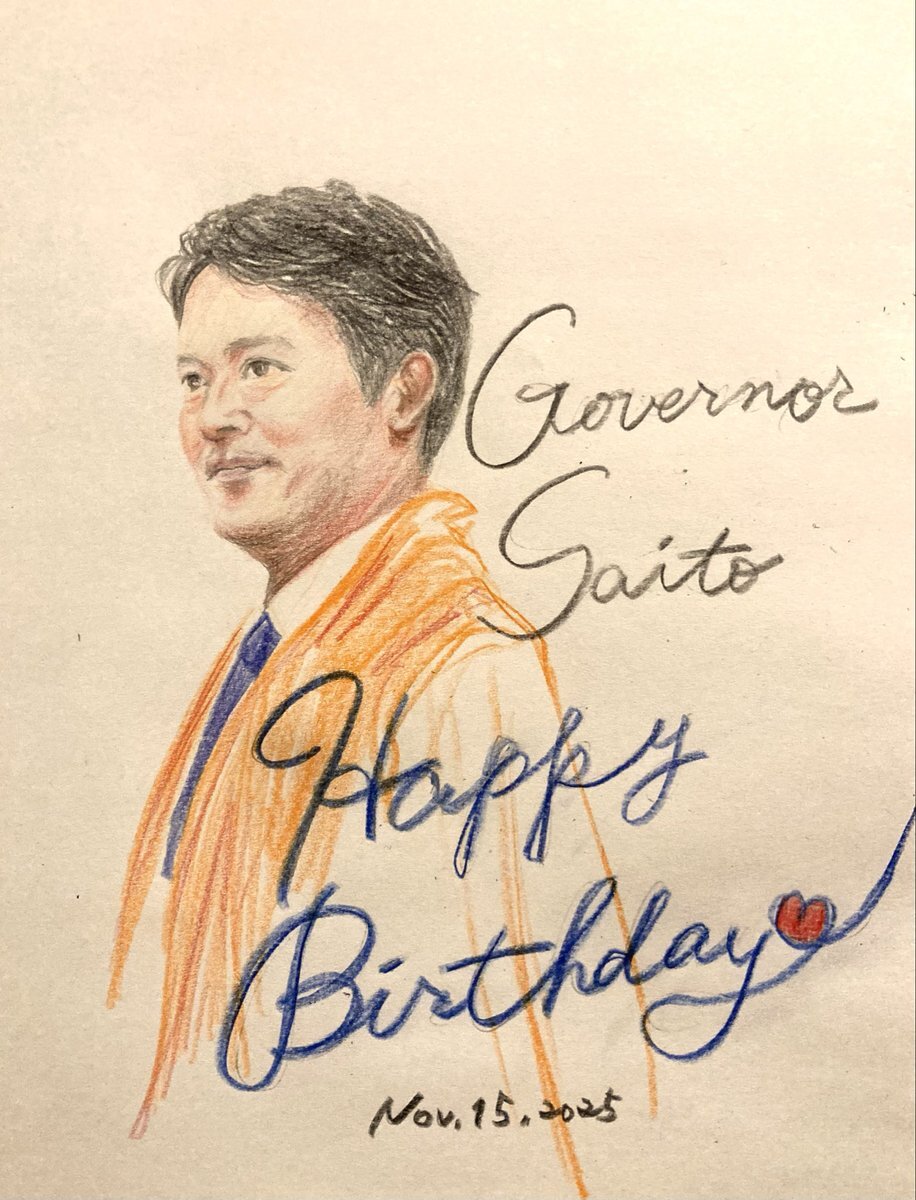 Governor
Saito
Happy
Birthday
Nov. 15. 2025